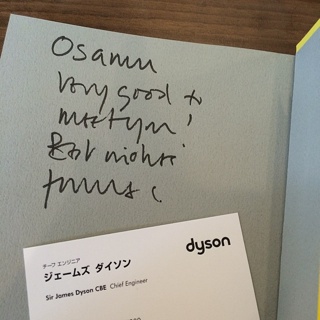 Osamu
Very good to
meet you!
Best wishes
James
dyson
チーフ エンジニア
ジェームズ ダイソン
Sir James Dyson CBE Chief Engineer